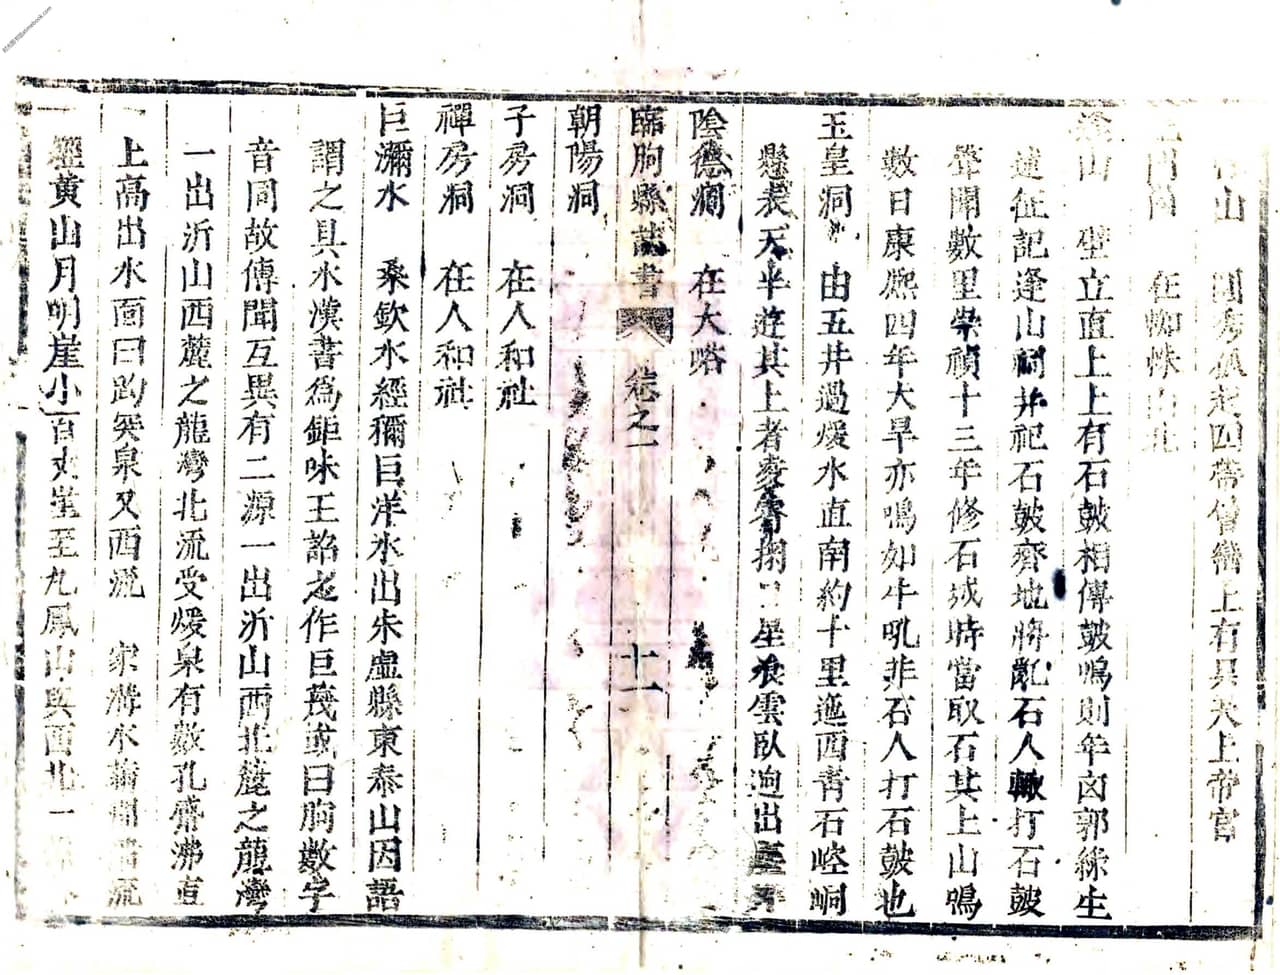 山 圓秀孤起四帶層巒上有昊天上帝宮
在 山北
逢山 壁立直上上有石皷相傳皷鳴則年凶郭緣生
述征記逢山祠并祀石皷齊地將亂石人輙打石皷
聲聞數里崇禎十三年修石城時當取石其上山鳴
數日康熙四年大旱亦鳴如牛吼非石人打石皷也
玉皇洞 由五井過煖水直南約十里迤西靑石崆峒
懸表天半遊其上者 星 雲臥 出
陰德澗 在大峪
臨朐縣誌書 卷之一 十一
朝陽洞
子房洞 在人和社
禪房洞 在人和社
巨瀰水 桑欽水經瀰巨洋水出朱虛縣東泰山因語
謂之具水漢書爲鉅昧王韶之作巨蔑或曰朐數字
音同故傳聞互異有二源一出沂山西北麓之龍灣
一出沂山西麓之龍灣北流受煖泉有數孔觱沸直
上高出水面曰趵突泉又西流 家溝水 流
經黃山月明崖小百丈崖至九鳳山與西北一